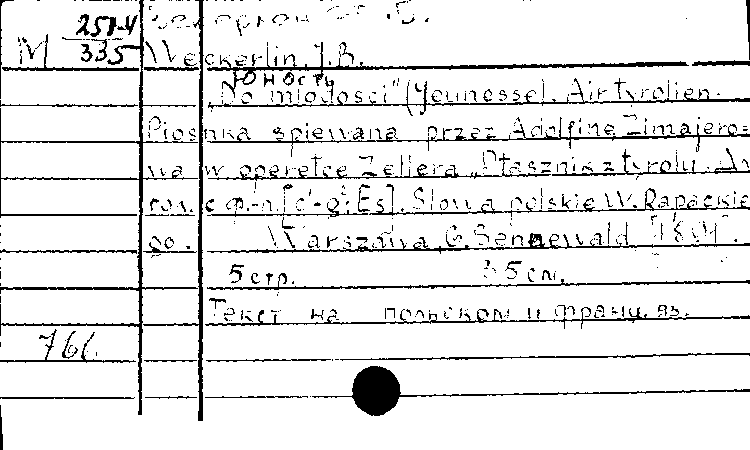 М 251-4
335
Weckerlin, J.B.
Юность
„Do młodości" (Jeunesse). Air tyrolien.
Piosnka śpiewana przez Adolfinę Zimajero=
wą w operetce Zellera „Ptasznik z tyrolu".
гол. с ф.-п. [c'-g²; Es]. Słowa polskie W. Rapackie
go. Warszawa, G. Sennewald
5 стр. 35 см.
Текст на польском и франц. яз.